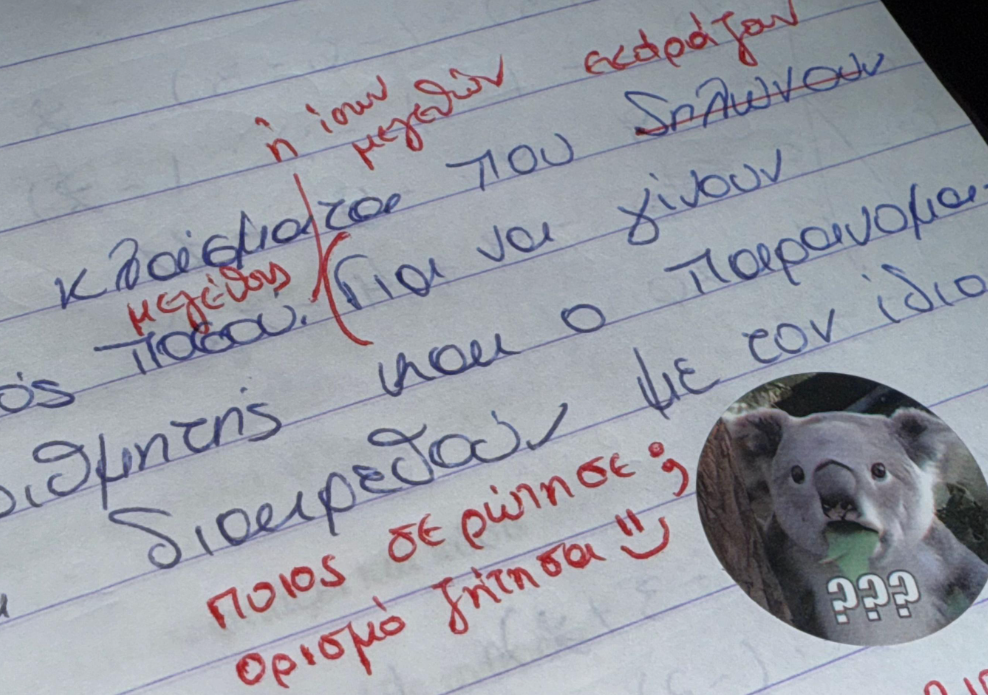 ή ίσων μεγεθών εκφράζουν
κλάσματα που δηλώνουν
μεγέθους
ποσού. Για να γίνουν
ιθμητής και ο παρανομα-
διαιρεθούν με τον ίδιο
ποιος σε ρώτησε;
ορισμό ζήτησα
???